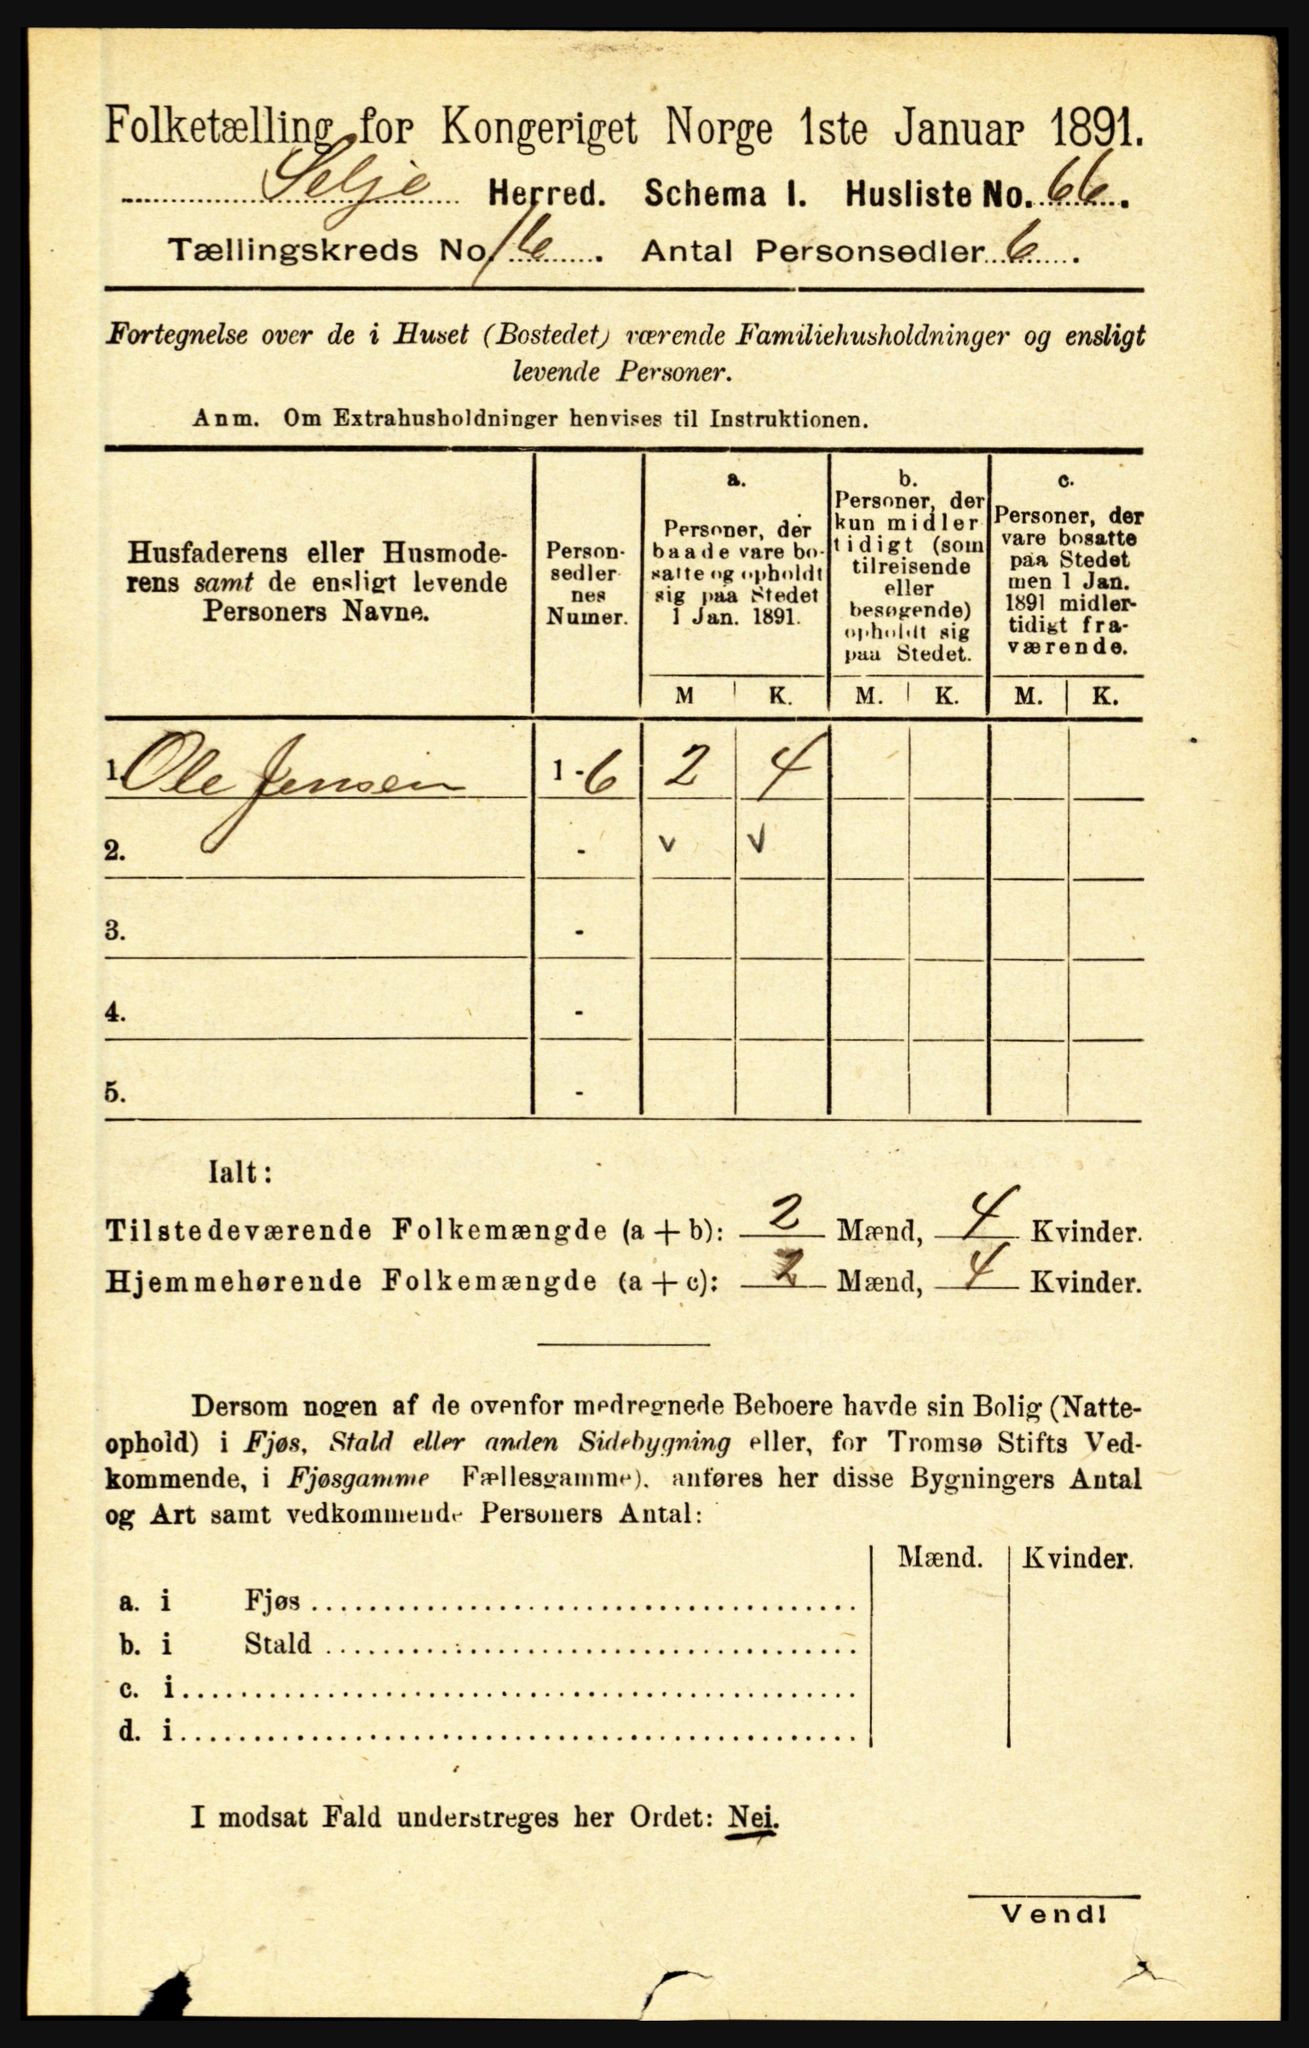 Folketælling for Kongeriget Norge 1ste Januar 1891.
Selje Herred. Schema I. Husliste No. 66.
Tællingskreds No. 16. Antal Personsedler 6.
Fortegnelse over de i Huset (Bostedet) værende Familiehusholdninger og ensligt
levende Personer.
Anm. Om Extrahusholdninger henvises til Instruktionen.
Husfaderens eller Husmode-
rens samt de ensligt levende
Personers Navne.
Person-
sedler
nes
Numer.
a.
Personer, der
baade vare bo-
satte og opholdt
sig paa Stedet
1 Jan. 1891.
b.
Personer, der
kun midler
tidigt (som
tilreisende
eller
besøgende)
opholdt sig
paa Stedet.
c.
Personer, der
vare bosatte
paa Stedet
men 1 Jan.
1891 midler-
tidigt fra-
værende.
M K. M. K. M. K.
1. Ole Jensen 1 - 6 2 4
2. - v v
3. -
4. -
5. -
Ialt:
Tilstedeværende Folkemængde (a + b): 2 Mænd, 4 Kvinder.
Hjemmehørende Folkemængde (a + c): 2 Mænd, 4 Kvinder.
Dersom nogen af de ovenfor medregnede Beboere havde sin Bolig (Natte-
ophold) i Fjøs, Stald eller anden Sidebygning eller, for Tromsø Stifts Ved-
kommende, i Fjøsgamme Fællesgamme). anføres her disse Bygningers Antal
og Art samt vedkommende Personers Antal:
Mænd. Kvinder.
a. i Fjøs
b. i Stald
c. i
d. i
I modsat Fald understreges her Ordet: Nei.
Vend!